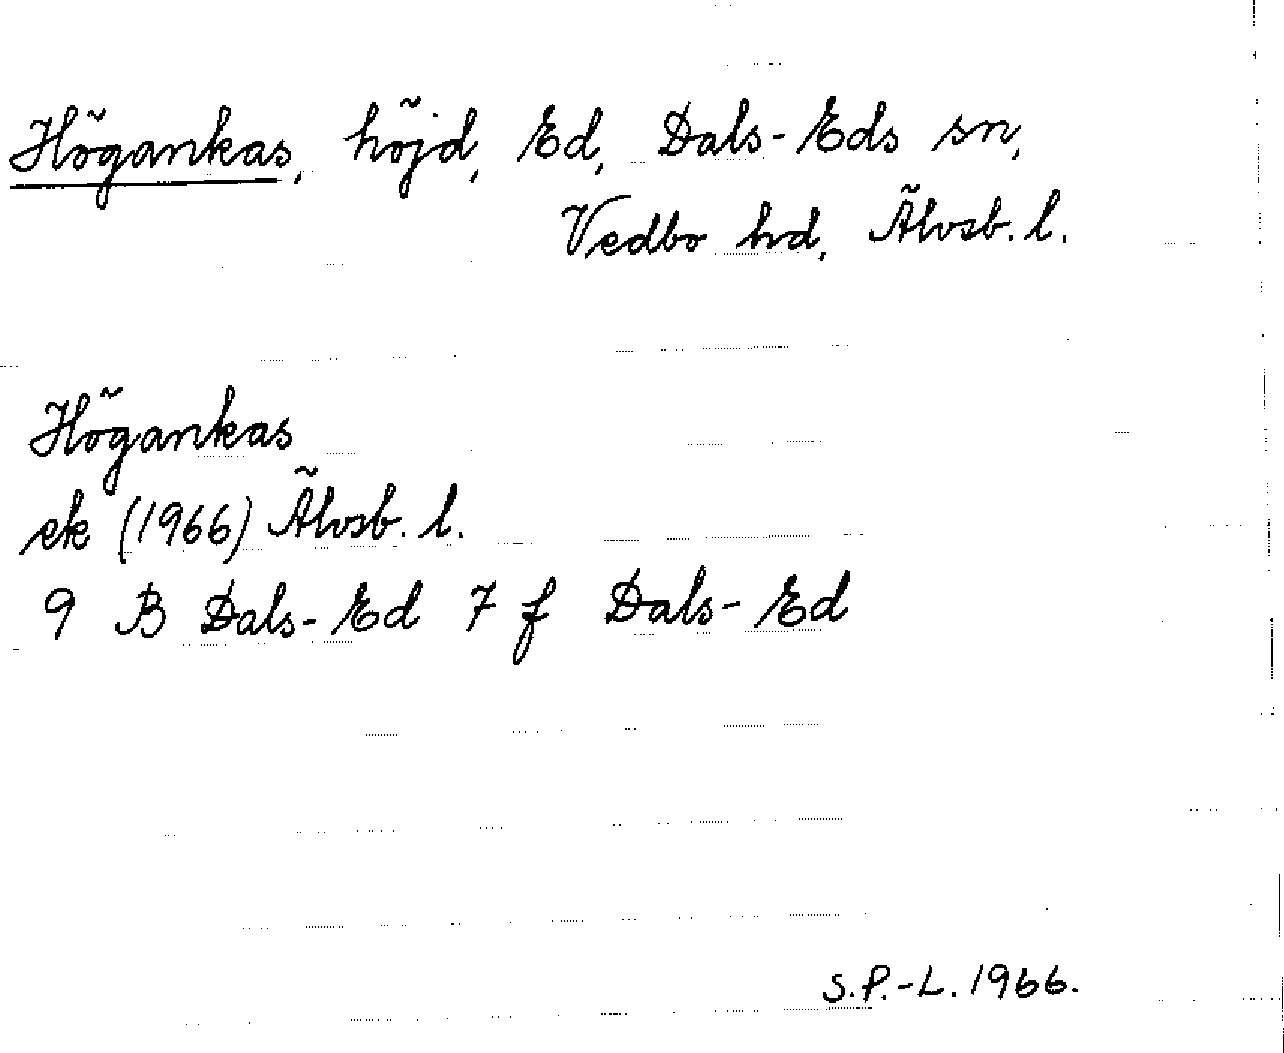 Högankas, höjd, Ed, Dals-Eds sn,
Vedbo hd, Älvsb. l.
Högankas
ek (1966) Älvsb. l.
9 B Dals-Ed 7 f Dals-Ed
S.P.-L. 1966.